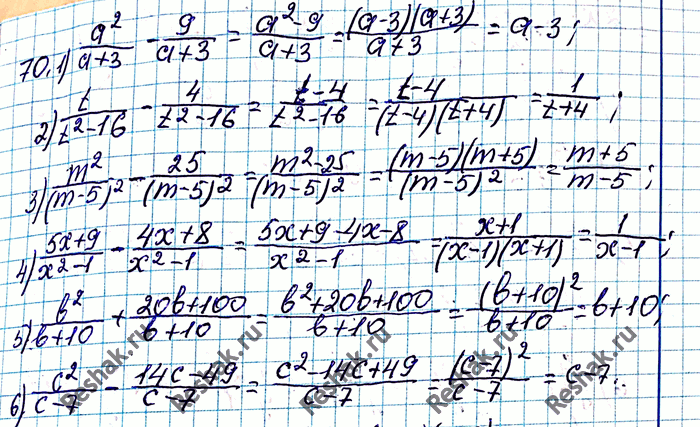 70.1) a²/(a+3) - 9/(a+3) = (a²-9)/(a+3) = (a-3)(a+3)/(a+3) = a-3;
2) t/(t²-16) - 4/(t²-16) = (t-4)/(t²-16) = (t-4)/((t-4)(t+4)) = 1/(t+4);
3) m²/(m-5)² - 25/(m-5)² = (m²-25)/(m-5)² = (m-5)(m+5)/(m-5)² = (m+5)/(m-5);
4) (5x+9)/(x²-1) - (4x+8)/(x²-1) = (5x+9-4x-8)/(x²-1) = (x+1)/((x-1)(x+1)) = 1/(x-1);
5) b²/(b+10) + (20b+100)/(b+10) = (b²+20b+100)/(b+10) = (b+10)²/(b+10) = b+10;
6) c²/(c-7) - (14c-49)/(c-7) = (c²-14c+49)/(c-7) = (c-7)²/(c-7) = c-7.
Reshak.ru Reshak.ru Reshak.ru Reshak.ru